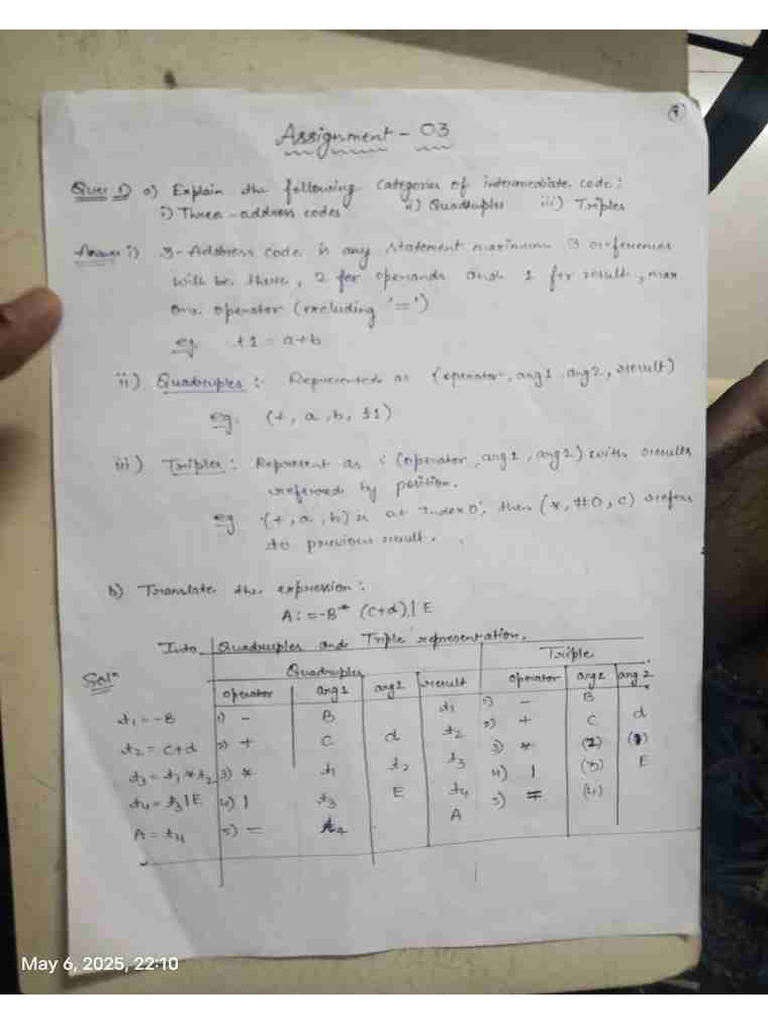 Assignment - 03
Ques 1) a) Explain the following categories of intermediate code:
i) Three-address codes ii) Quadruples iii) Triples
Answer i) 3-Address code is any statement maximum 3 references
will be there, 2 for operands and 1 for result, max
one operator (excluding '=')
eg. t1 = a+b
ii) Quadruples :- Represented as (operator, arg1 arg2, result)
eg. (+, a, b, t1)
iii) Triples : Represent as : (operator, arg1, arg2) with results
referred by position.
eg (+, a, b) is at index 0, then (*, #0, c) refers
to previous result.
b) Translate the expression:
A: = -B* (C+d) | E
Into Quadruples and Triple representation.
Solⁿ Quadruples Triple
operator arg1 arg2 result operator arg1 arg2
t1 = -B 1) - B t1 1) - B
t2 = C+d 2) + C d t2 2) + C d
t3 = t1 * t2 3) * t1 t2 t3 3) * (2)
t4 = t3 | E 4) | t3 E t4 4) | (3) E
A = t4 5) = A 5) = (4)
May 6, 2025, 22:10